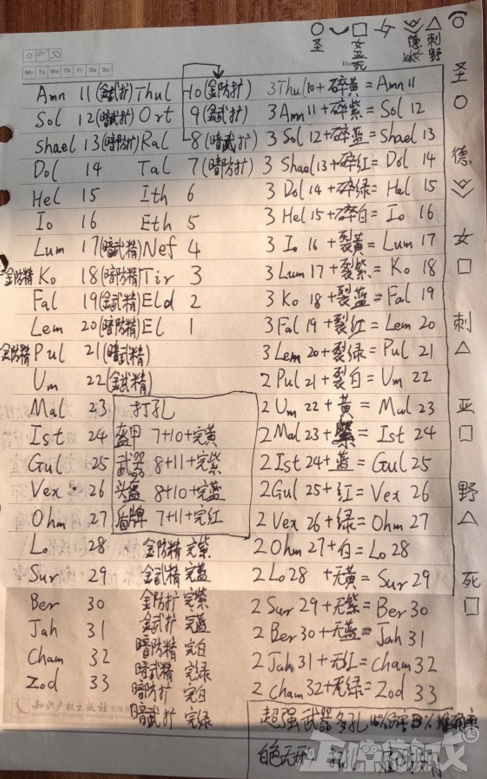 圣
女 亚 死
德
刺 野
Mo Tu We Th Fr Sa Su
Amn 11(金武扩) Thul 10(金防扩) 3Thul10+碎黄=Amn11
Sol 12(暗武扩) Ort 9(金武扩) 3Amn11+碎紫=Sol 12
Shael 13(暗防扩) Ral 8(暗武扩) 3 Sol 12+碎蓝=Shael 13
Dol 14 Tal 7(暗防扩) 3 Shael13+碎红=Dol 14
Hel 15 Ith 6 3 Dol 14+碎绿=Hel 15
Io 16 Eth 5 3 Hel 15+碎白=Io 16
Lum 17(暗武精) Nef 4 3 Io 16+裂黄=Lum 17
金防精 Ko 18(暗防精) Tir 3 3 Lum 17+裂紫=Ko 18
Fal 19(金武精) Eld 2 3 Ko 18+裂蓝=Fal 19
Lem 20(暗防精) El 1 3 Fal 19+裂红=Lem 20
金防精 Pul 21(暗武精) 3 Lem 20+裂绿=Pul 21
Um 22(金武精) 2 Pul 21+裂白=Um 22
Mal 23 打孔 2 Um 22+黄=Mal 23
Ist 24 盔甲 7+10+完黄 2 Mal 23+紫=Ist 24
Gul 25 武器 8+11+完紫 2 Ist 24+蓝=Gul 25
Vex 26 头盔 8+10+完蓝 2Gul 25+红=Vex 26
Ohm 27 盾牌 7+11+完红 2 Vex 26+绿=Ohm 27
Lo 28 金防精 完紫 2 Ohm 27+白=Lo 28
Sur 29 金武精 完蓝 2 Lo28 +无黄=Sur 29
Ber 30 金防扩 完紫 2 Sur 29+无紫=Ber 30
Jah 31 金武扩 完蓝 2 Ber 30+无蓝=Jah 31
Cham 32 暗防精 完白 2 Jah 31+无红=Cham 32
Zod 33 暗武精 完绿 2 Cham 32+无绿=Zod 33
暗防扩 完白
暗武扩 完绿
知识产权出版社
超强武器多孔
圣
德
女
刺
亚
野
死